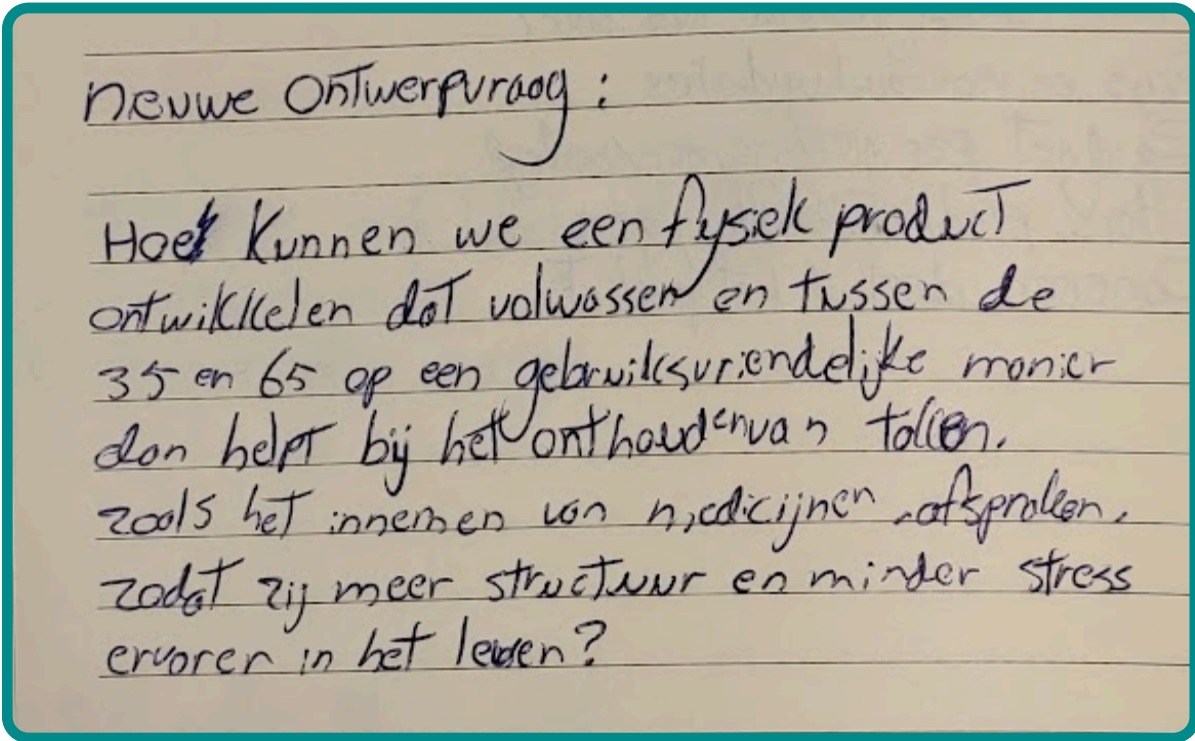 nieuwe Ontwerpvraag :
Hoe kunnen we een fysiek product
ontwikkelen dat volwassen en tussen de
35 en 65 op een gebruiksvriendelijke manier
dan helpt bij het onthouden van taken.
zoals het innemen van medicijnen, afspraken,
zodat zij meer structuur en minder stress
ervaren in het leven?